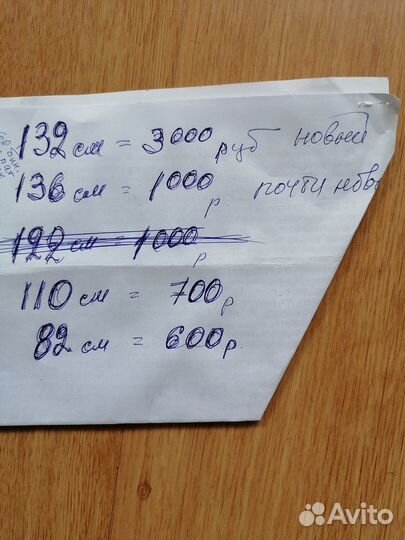 132 см = 3000 руб новый
136 см = 1000 р почти нов
122 см = 1000 р
110 см = 700 р
82 см = 600 р.
Avito